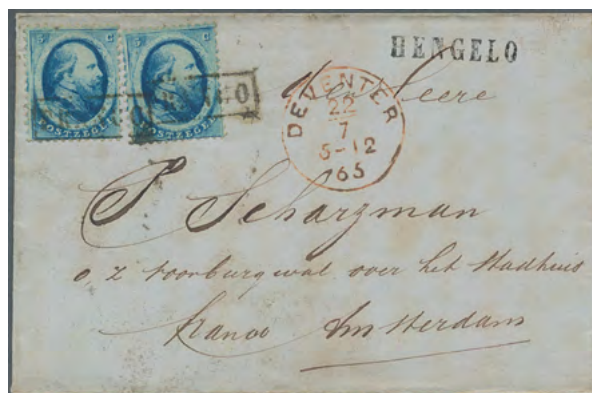 5 C 5 C
POSTZEGEL POSTZEGEL
FRANCO
HENGELO
DEVENTER
22
7
5-12
65
Heere
P Scharzman
o z voorburgwal over het Stadhuis
franco Amsterdam